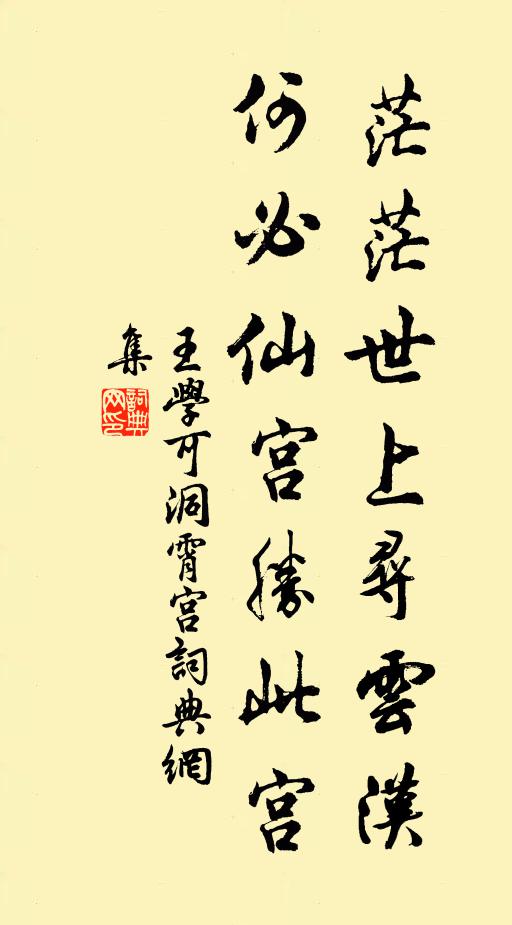 茫茫世上尋雲漢
何必仙宫勝此宫
王學可洞霄宫詞典網
集
詞典网印